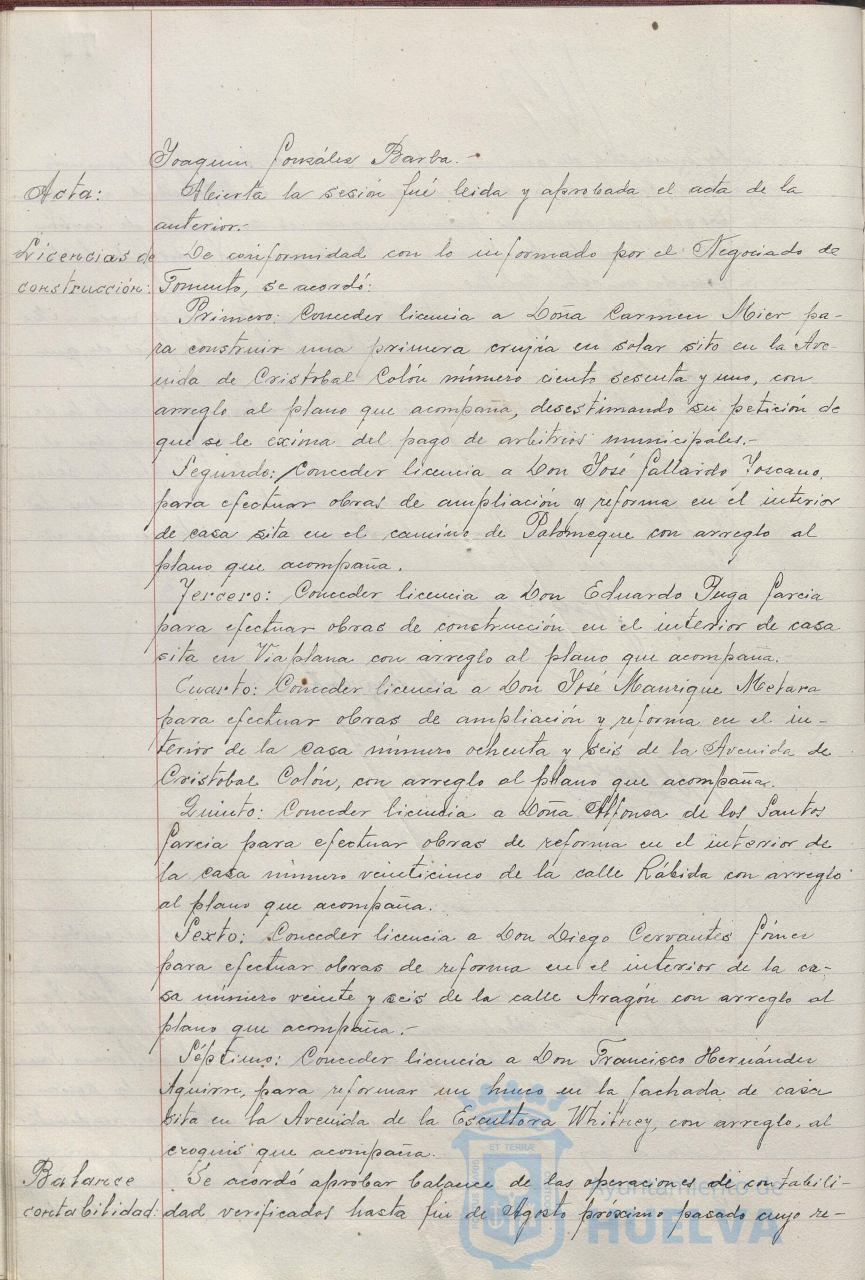 Joaquin González Barba.-
Acta:
Abierta la sesión fué leida y aprobada el acta de la
anterior.-
Licencias de
construcción:
De conformidad con lo informado por el Negociado de
Fomento, se acordó:
Primero: Conceder licencia a Doña Carmen Mier pa-
ra construir una primera crujía en solar sito en la Ave-
nida de Cristobal Colón número ciento sesenta y uno, con
arreglo al plano que acompaña, desestimando su petición de
que se le exima del pago de arbitrios municipales.-
Segundo: Conceder licencia a Don José Gallardo Toscano,
para efectuar obras de ampliación y reforma en el interior
de casa sita en el camino de Palomeque con arreglo al
plano que acompaña.
Tercero: Conceder licencia a Don Eduardo Puga Garcia
para efectuar obras de construcción en el interior de casa
sita en Viaplana con arreglo al plano que acompaña.-
Cuarto: Conceder licencia a Don José Manrique
para efectuar obras de ampliación y reforma en el in-
terior de la casa número ochenta y seis de la Avenida de
Cristobal Colón, con arreglo al plano que acompaña.
Quinto: Conceder licencia a Doña Alfonsa de los Santos
Garcia para efectuar obras de reforma en el interior de
la casa número veinticinco de la calle Rábida con arreglo
al plano que acompaña.
Sexto: Conceder licencia a Don Diego Cervantes Gómez
para efectuar obras de reforma en el interior de la ca-
sa número veinte y seis de la calle Aragón con arreglo al
plano que acompaña.-
Séptimo: Conceder licencia a Don Francisco Hernández
Aguirre, para reformar un hueco en la fachada de casa
sita en la Avenida de la Escultora Whitney, con arreglo, al
croquis que acompaña.
Balance
contabilidad:
Se acordó aprobar balance de las operaciones de contabili-
dad verificados hasta fin de Agosto próximo pasado cuyo re-
ET TERRÆ
Ayuntamiento de
HUELVA